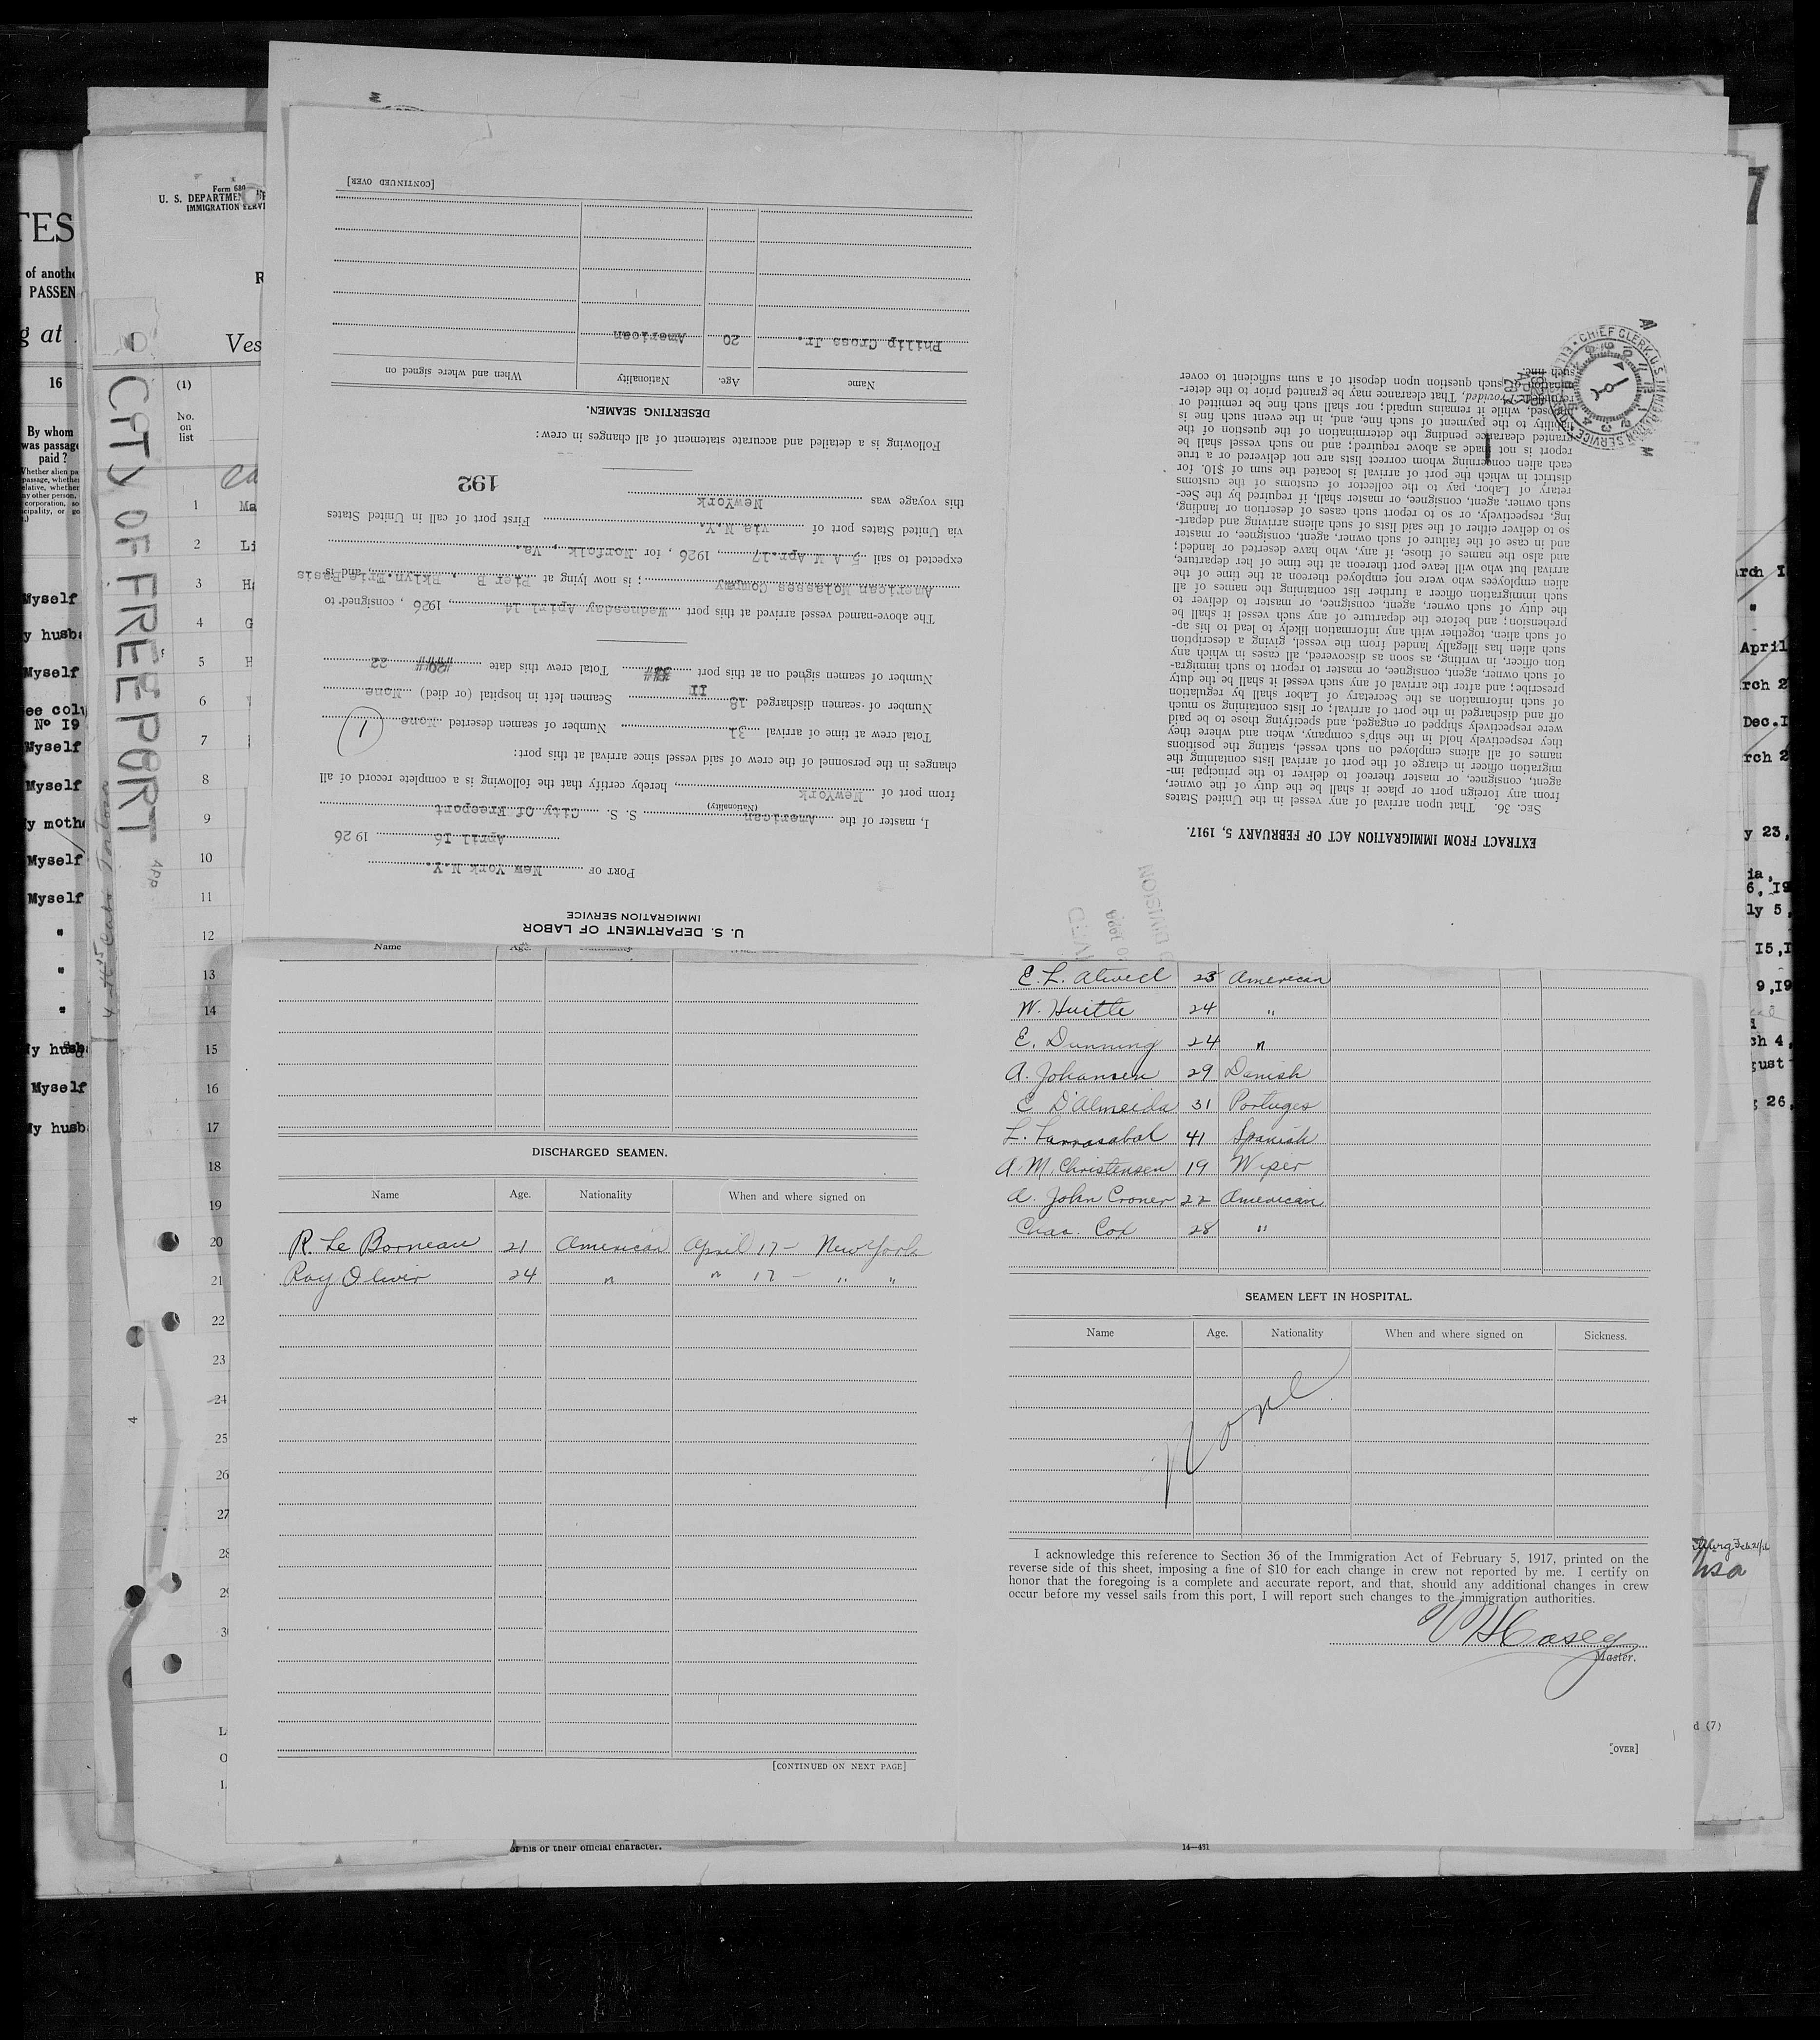 U. S. DEPARTMENT OF LABOR
IMMIGRATION SERVICE
PORT OF New York N.Y.
April 16 1926
I, master of the American S. S. City Of Freeport
(Nationality)
from port of NewYork, hereby certify that the following is a complete record of all
changes in the personnel of the crew of said vessel since arrival at this port:
Total crew at time of arrival 31 Number of seamen deserted None
1
Number of seamen discharged 18 Seamen left in hospital (or died) None
II
Number of seamen signed on at this port Total crew this date 22
The above-named vessel arrived at this port Wednesday Apirl 14, 1926, consigned to
American Molasses Company; is now lying at Pier B . Bklyn.Erie Basin, and is
expected to sail 5 A M Apr.17, 1926, for Norfolk , Va.
via United States port of via N.Y. First port of call in United States
this voyage was NewYork 192
Following is a detailed and accurate statement of all changes in crew:
DESERTING SEAMEN.
Name Age. Nationality When and where signed on
Philip Cross Jr. 20 American
[CONTINUED OVER]
EXTRACT FROM IMMIGRATION ACT OF FEBRUARY 5, 1917.
SEC. 36. That upon arrival of any vessel in the United States
from any foreign port or place it shall be the duty of the owner,
agent, consignee, or master thereof to deliver to the principal im-
migration officer in charge of the port of arrival lists containing the
names of all aliens employed on such vessel, stating the positions
they respectively hold in the ship's company, when and where they
were respectively shipped or engaged, and specifying those to be paid
off and discharged in the port of arrival; or lists containing so much
of such information as the Secretary of Labor shall by regulation
prescribe; and after the arrival of any such vessel it shall be the duty
of such owner, agent, consignee, or master to report to such immigra-
tion officer, in writing, as soon as discovered, all cases in which any
such alien has illegally landed from the vessel, giving a description
of such alien, together with any information likely to lead to his ap-
prehension; and before the departure of any such vessel it shall be
the duty of such owner, agent, consignee, or master to deliver to
such immigration officer a further list containing the names of all
alien employees who were not employed thereon at the time of the
arrival but who will leave port thereon at the time of her departure,
and also the names of those, if any, who have deserted or landed;
and in case of the failure of such owner, agent, consignee, or master
so to deliver either of the said lists of such aliens arriving and depart-
ing, respectively, or so to report such cases of desertion or landing,
such owner, agent, consignee, or master shall, if required by the Sec-
retary of Labor, pay to the collector of customs of the customs
district in which the port of arrival is located the sum of $10. for
each alien concerning whom correct lists are not delivered or a true
report is not made as above required; and no such vessel shall be
granted clearance pending the determination of the question of the
liability to the payment of such fine, and, in the event such fine is
imposed, while it remains unpaid; nor shall such fine be remitted or
refunded: Provided, That clearance may be granted prior to the deter-
mination of such question upon deposit of a sum sufficient to cover
such fine.
CHIEF CLERK, U.S. IMMIGRATION SERVICE
DIVISION
Form 689
U. S. DEPARTMEN
IMMIGRATION SERVI
Ves
(1)
No.
on
list
CITY OF FREEPORT
TES
of anothe
PASSEN
g at
16
By whom
was passage
paid?
1 Ma
2 Li
3 H
4 G
5 H
6
7
8
9
10
11
12
13
14
15
16
17
18
19
20
21
22
23
24
25
26
27
28
29
Myself
y husba
Myself
ee colu
No 19
Myself
Myself
y mothe
Myself
Myself
"
"
"
Myself
y husb
Name
DISCHARGED SEAMEN.
Name Age. Nationality When and where signed on
R. Le Borneau 21 American April 17 - New York
Roy Oliver 24 " " 17 - " "
[CONTINUED ON NEXT PAGE]
E. L. Atwell 23 American
W. Huitle 24 "
E. Dunning 24 "
A. Johansen 29 Danish
C D'Almeida 31 Portuges
L. Larrasabal 41 Spanish
A. M. Christensen 19 Wiper
A. John Croner 22 American
Chas. Cox 28 "
SEAMEN LEFT IN HOSPITAL.
Name Age. Nationality When and where signed on Sickness.
None
I acknowledge this reference to Section 36 of the Immigration Act of February 5, 1917, printed on the
reverse side of this sheet, imposing a fine of $10 for each change in crew not reported by me. I certify on
honor that the foregoing is a complete and accurate report, and that, should any additional changes in crew
occur before my vessel sails from this port, I will report such changes to the immigration authorities.
V H Casey
Master.
[OVER]
7
April
rch 2
Dec.1
rch 2
y 23,
ia,
6, 19
ly 5,
15,1
9,19
ch 4,
gust
26,
d (7)
of his or their official character.
14-431